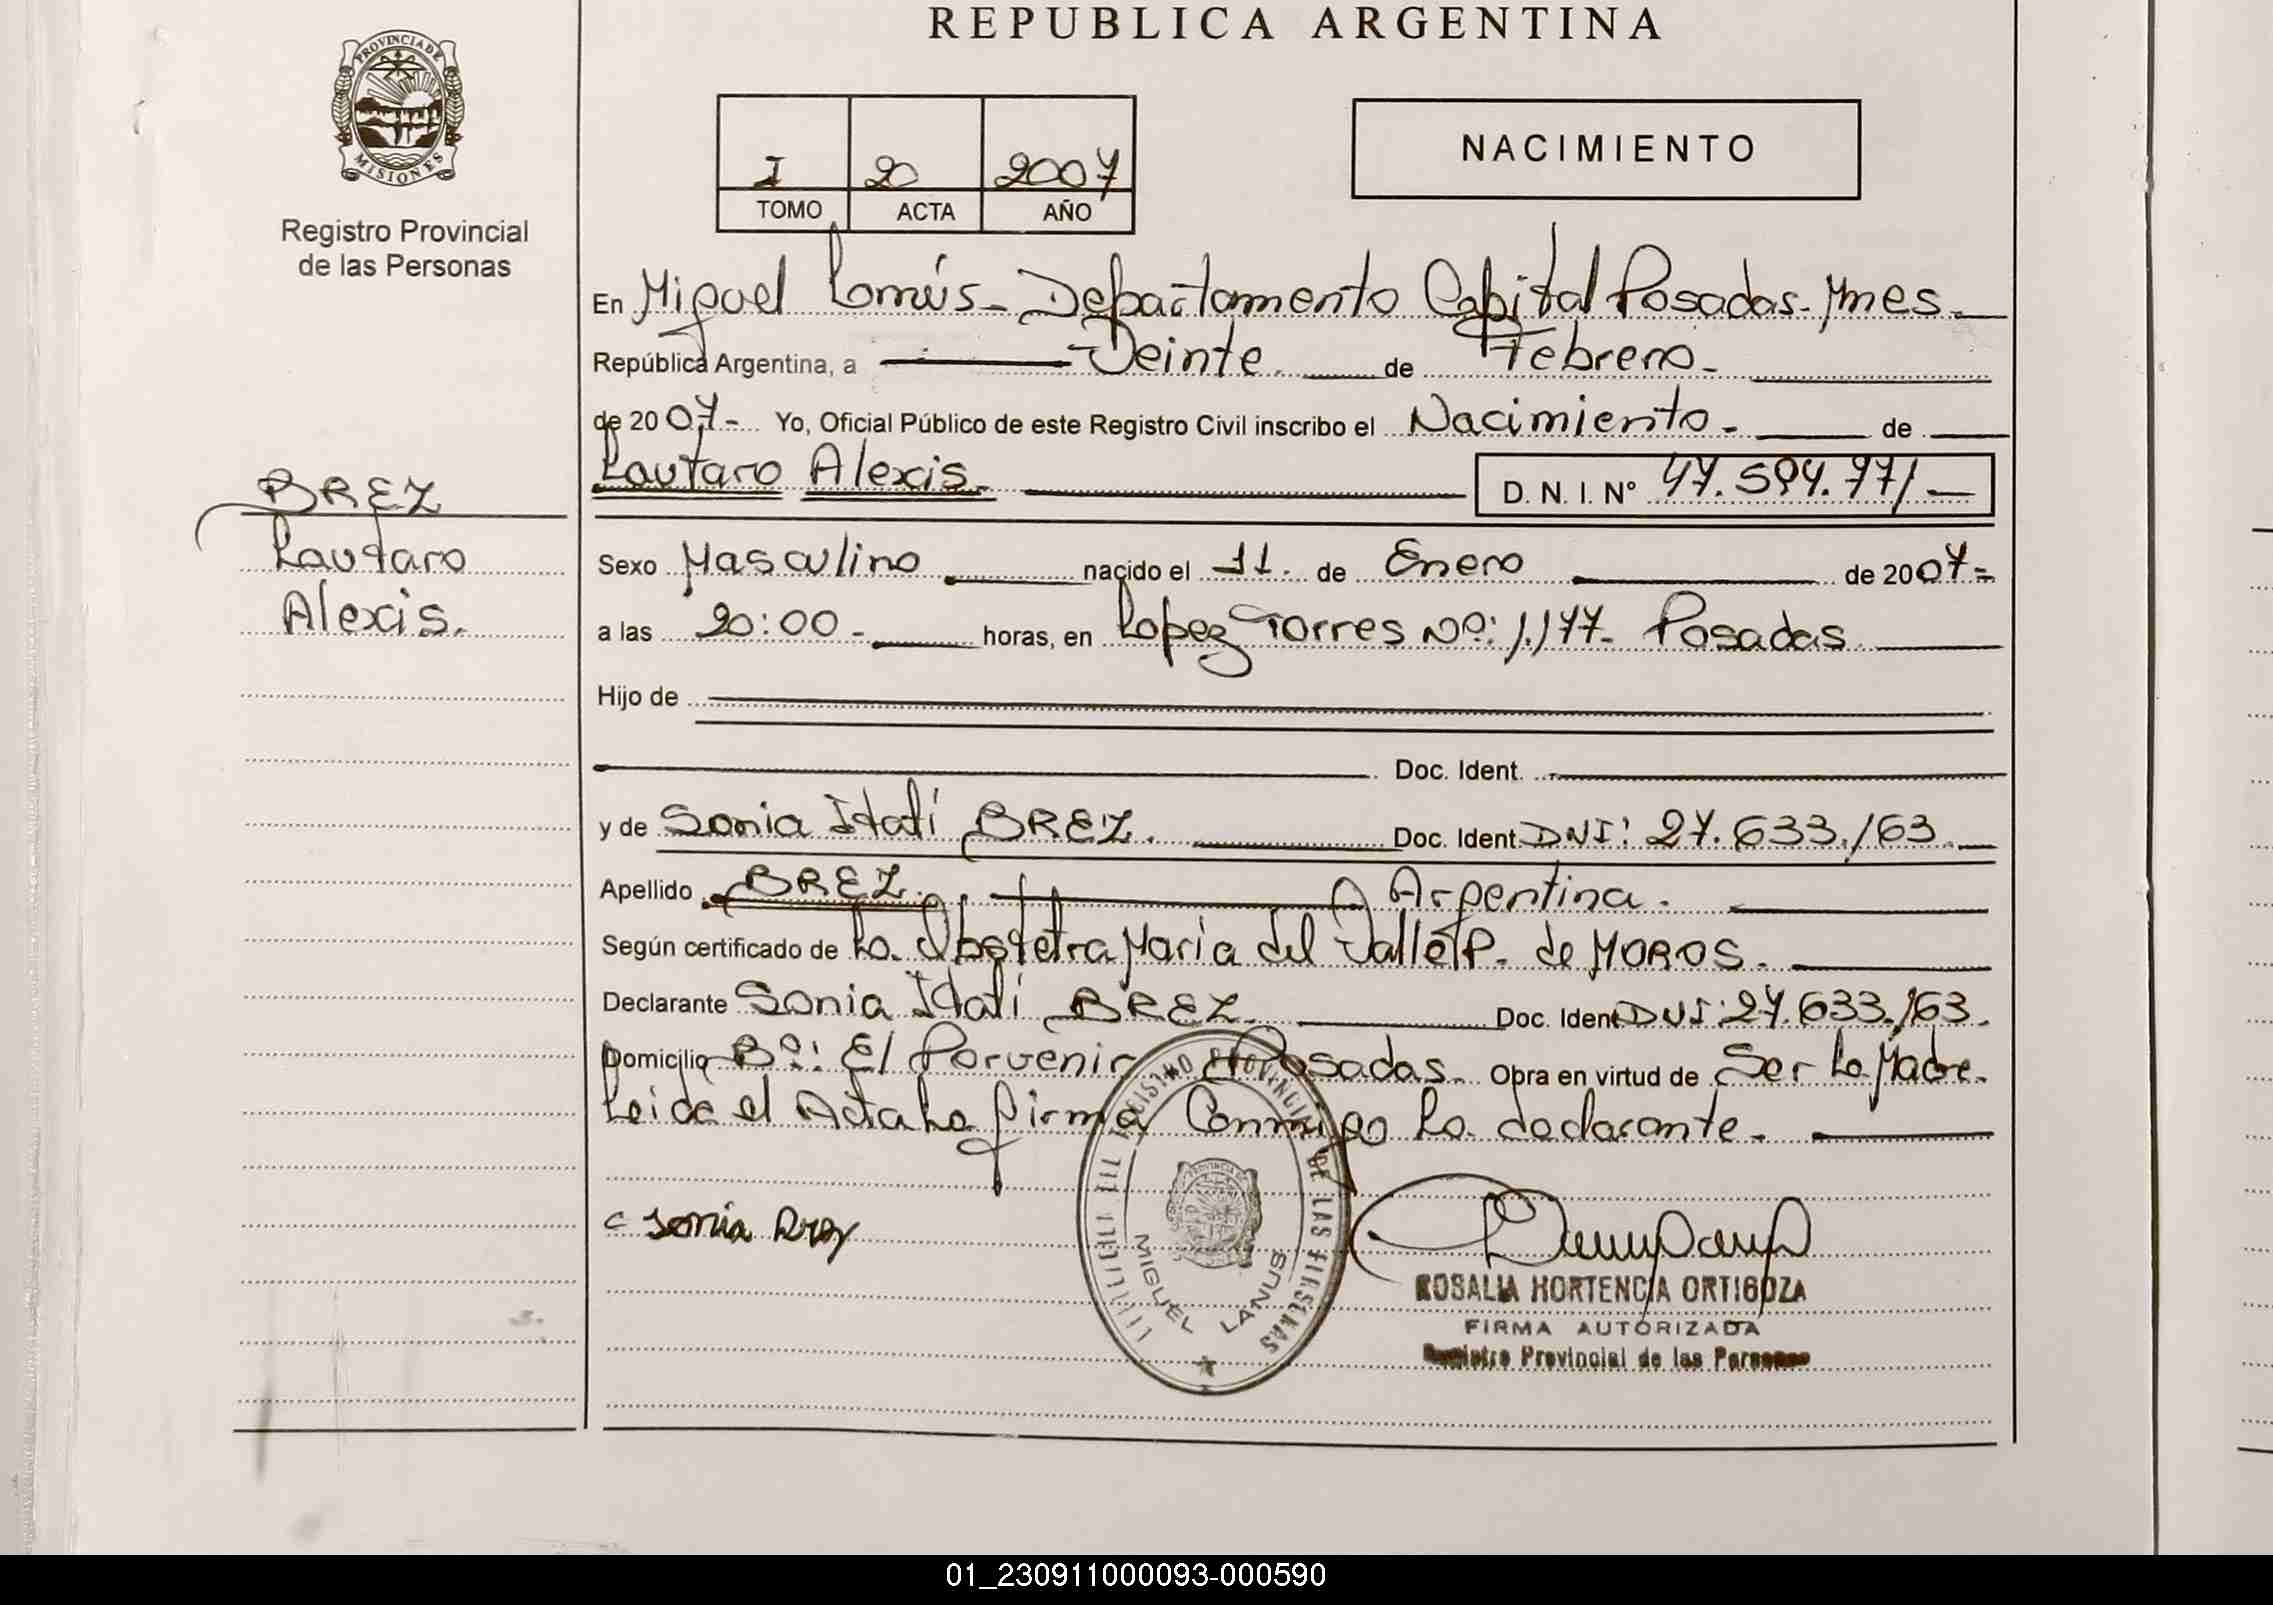 REPUBLICA ARGENTINA
PROVINCIA DE MISIONES
Registro Provincial
de las Personas
I 20 2007
TOMO ACTA AÑO
NACIMIENTO
En Miguel Lanús - Departamento Capital Posadas - Mnes.
República Argentina, a Veinte. de Febrero.
de 2007.- Yo, Oficial Público de este Registro Civil inscribo el Nacimiento - de
Lautaro Alexis. D. N. I. Nº 47.594.771
BREZ
Lautaro
Alexis.
Sexo Masculino nacido el 11. de Enero de 2007-
a las 20:00 - horas, en Lopez Torres Nº: 1.177- Posadas
Hijo de
Doc. Ident.
y de Sonia Itatí BREZ. Doc. Ident. DNI: 27.633.163.
Apellido BREZ. Argentina.
Según certificado de La Obstetra Maria del Valle P. de MOROS.
Declarante Sonia Itatí BREZ. Doc. Ident. DNI: 27.633.163.
Domicilio Bº: El Porvenir Posadas. Obra en virtud de Ser La Madre.
Leida el Acta La firma Conmigo La declarante.
Sonia Brez
REGISTRO PROVINCIAL DE LAS PERSONAS
MIGUEL LANUS
ROSALIA HORTENCIA ORTIGOZA
FIRMA AUTORIZADA
Registro Provincial de las Personas
01_230911000093-000590